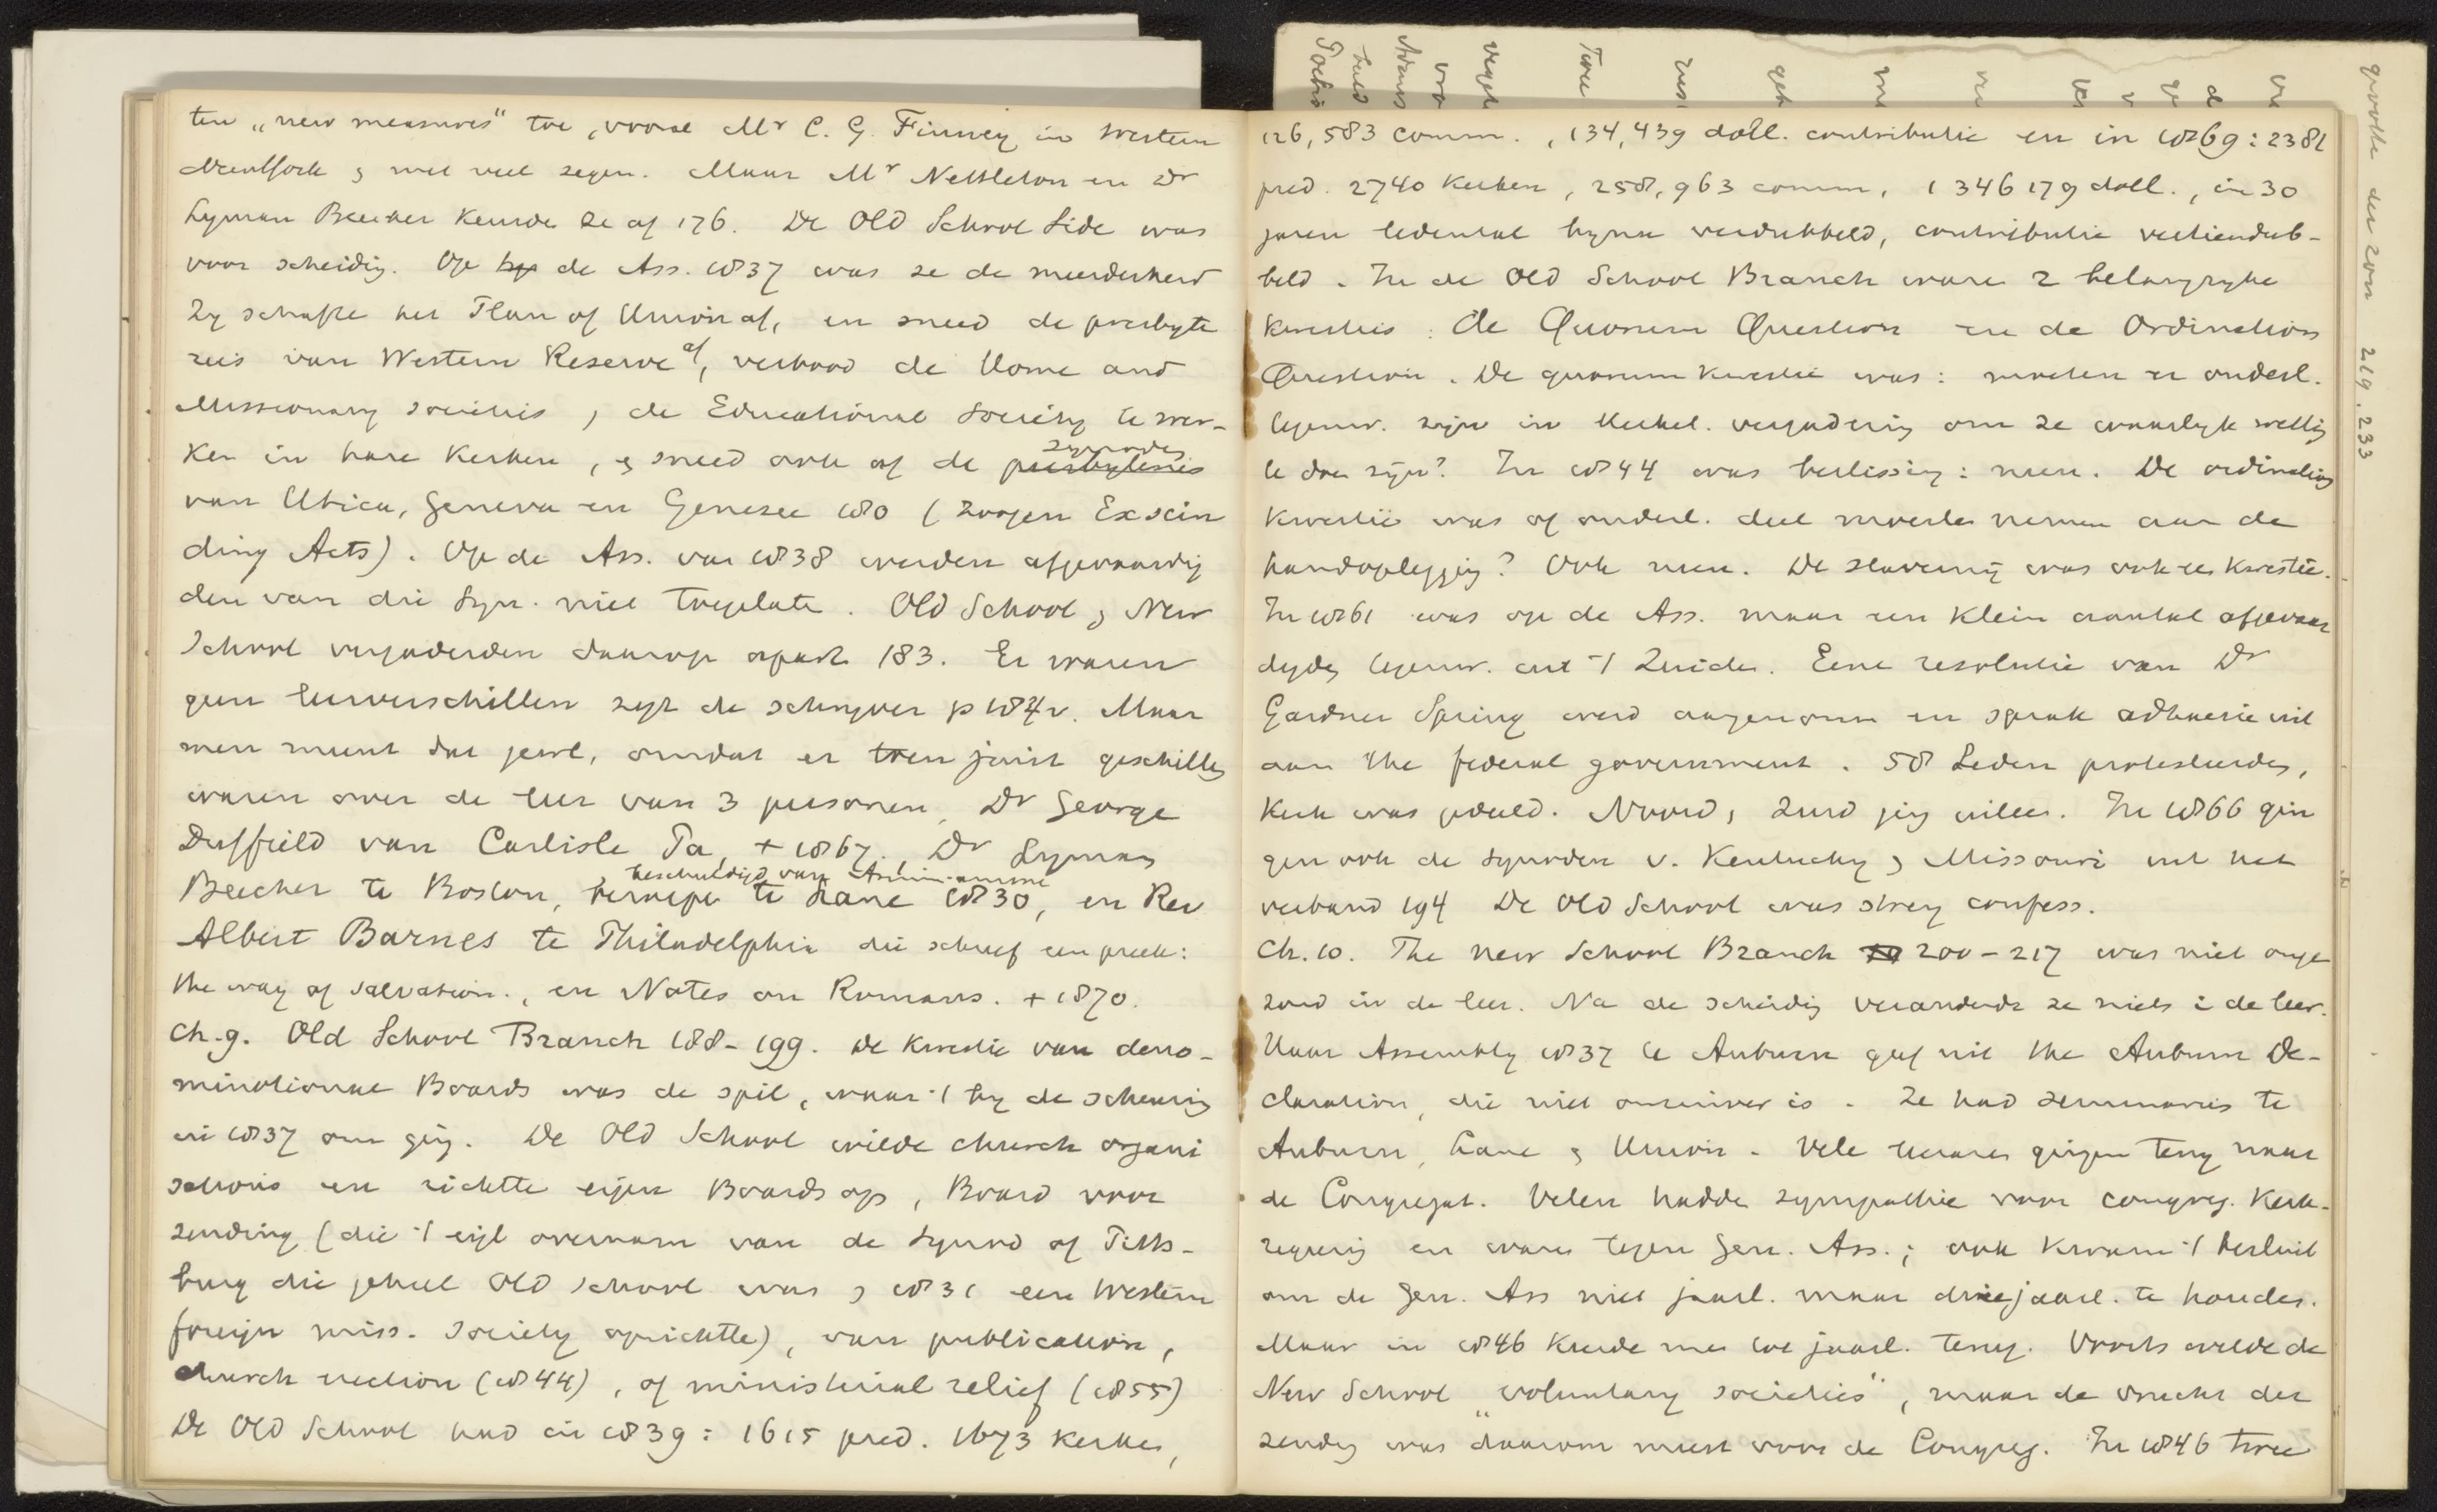 ten „new measures" toe, vooral Mr C. G. Finney in Western
NewYork & met veel zegen. Maar Mr Nettleton en Dr
Lyman Beecher keurde ze af 176. De Old School Side was
voor scheiding. Op de Ass. 1837 was ze de meerderheid
Zy schafte het Plan of Union af, en sneed de presbyte
ries van Western Reserve af, verbood de Home and
Missionary societies, de Educational Society te wer-
ken in hare Kerken, & sneed ook af de presbyteries synodes
van Utica, Geneva en Genesee 180 (zoogen Exscin
ding Acts). Op de Ass. van 1838 werden afgevaardig
den van die Syn. niet toegelate. Old School & New
School vergaderden daarop apart 183. Er waren
geen leerverschillen zegt de schryver p 184v. Maar
men meent dat jewl, omdat er toen juist geschillen
waren over de leer van 3 personen, Dr George
Duffield van Carlisle Pa, + 1867, Dr Lyman
Beecher te Boston, beroepe te Lane 1830, beschuldigd van Arminianisme en Rev
Albert Barnes te Philadelphia die schreef een preek:
the way of salvation., en Notes on Romans. + 1870.
Ch. 9. Old School Branch 188-199. De kwestie van deno-
minationale Boards was de spil, waar 't by de scheuring
in 1837 om ging. De Old School wilde church organi
sations en richtte eigen Boards op, Board voor
zending (die 't eigl overnam van de Synod of Pitts-
burg die geheel Old School was & 1831 een Western
foreign miss. society oprichtte), van publication,
church erection (1844), of ministerial relief (1855)
De Old School had in 1839: 1615 pred. 1673 kerken,
126,583 comm., 134,439 doll. contributie en in 1869: 2381
pred. 2740 Kerken, 258,963 comm, 1346179 doll., in 30
jaren ledental byna verdubbeld, contributie vertiendub-
beld. In de Old School Branch ware 2 belangryke
kwesties: de Quorum Question en de Ordination
Question. De quorum kwestie was: moeten er ouderl.
tegenw. zijn in Kerkel. vergadering om ze waarlyk wettig
te doen zijn? In 1844 was beslissing: neen. De ordination
kwestie was of ouderl. deel moesten nemen aan de
handoplegging? Ook neen. De slaverny was ook een kwestie.
In 1861 was op de Ass. maar een klein aantal afgevaar
digden tegenw. uit 't Zuiden. Eene resolutie van Dr
Gardner Spring werd aangenomen en sprak adhaesie uit
aan the federal government. 58 Leden protesteerden,
Kerk was gedeeld. Noord & Zuid ging uiteen. In 1866 gin
gen ook de Synoden v. Kentucky & Missouri uit het
verband 194 De Old School was streng confess.
Ch. 10. The New School Branch 200-217 was niet onge
zond in de leer. Na de scheiding veranderde ze niets i de leer.
Haar Assembly 1837 te Auburn gaf uit the Auburn De-
claration, die niet onzuiver is. Ze had seminaries te
Auburn, Lane & Union. Vele leeraren gingen terug naar
de Congregat. Velen hadde sympathie voor congreg. Kerk-
regering en waren tegen Gen. Ass.; ook kwam 't besluit
om de Gen. Ass niet jaarl. maar driejaarl. te houden.
Maar in 1846 keerde men tot jaarl. terug. Voorts wilde de
New School „voluntary societies", maar de vrucht der
zending was daarom meest voor de Congreg. In 1846 twee
grootte der zon 219. 233